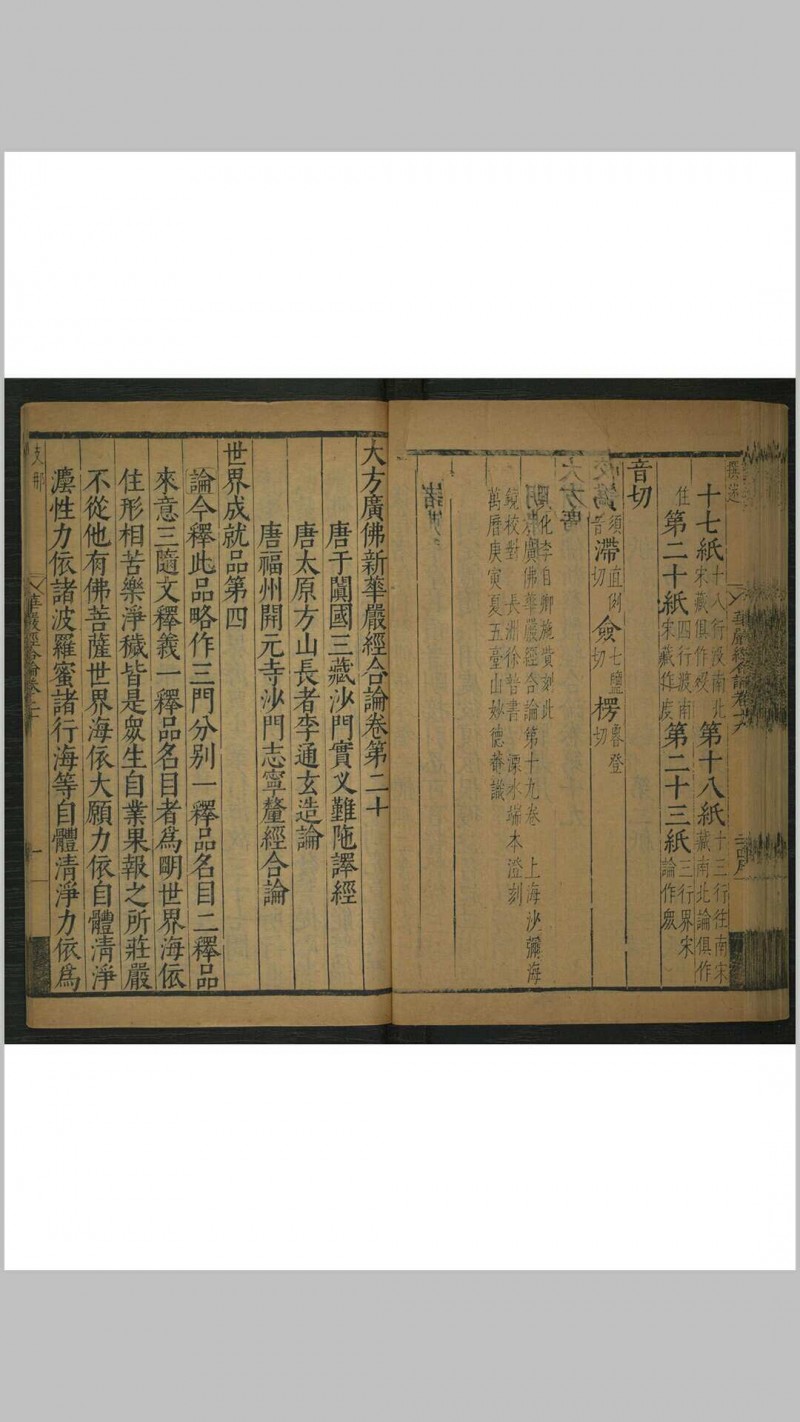 十七紙十八行没南北宋藏俱作歿 第十八紙十三行往南宋藏南北論俱作
住 第二十紙四行波南宋藏作度 第二十三紙三行界宋論作眾
音切
須音切 滯直例切 僉七鹽切 楞魯登切
化李自卿施貲刻此
廣佛華嚴經合論第十九卷 上海沙彌海
鏡校對 長洲徐普書 溧水端本澄刻
萬曆庚寅夏五臺山妙德菴識
大方廣佛新華嚴經合論卷第二十
唐于闐國三藏沙門實叉難陁譯經
唐太原方山長者李通玄造論
唐福州開元寺沙門志寧釐經合論
世界成就品第四
論今釋此品略作三門分別一釋品名目二釋品
來意三隨文釋義一釋品名目者為明世界海依
住形相苦樂淨穢皆是眾生自業果報之所莊嚴
不從他有佛菩薩世界海依大願力依自體清淨
灋性力依諸波羅蜜諸行海等自體清淨力依為
支那
華嚴經合論卷二十
一